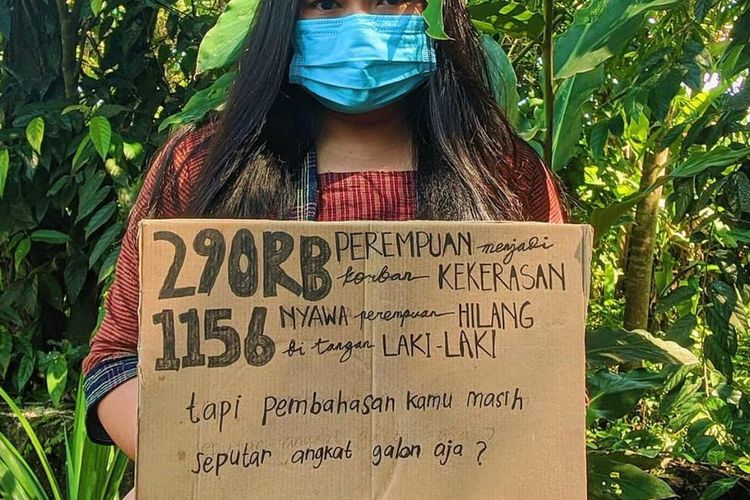 290RB PEREMPUAN menjadi
korban KEKERASAN
1156 NYAWA perempuan HILANG
di tangan LAKI-LAKI
tapi pembahasan kamu masih
seputar angkat galon aja?